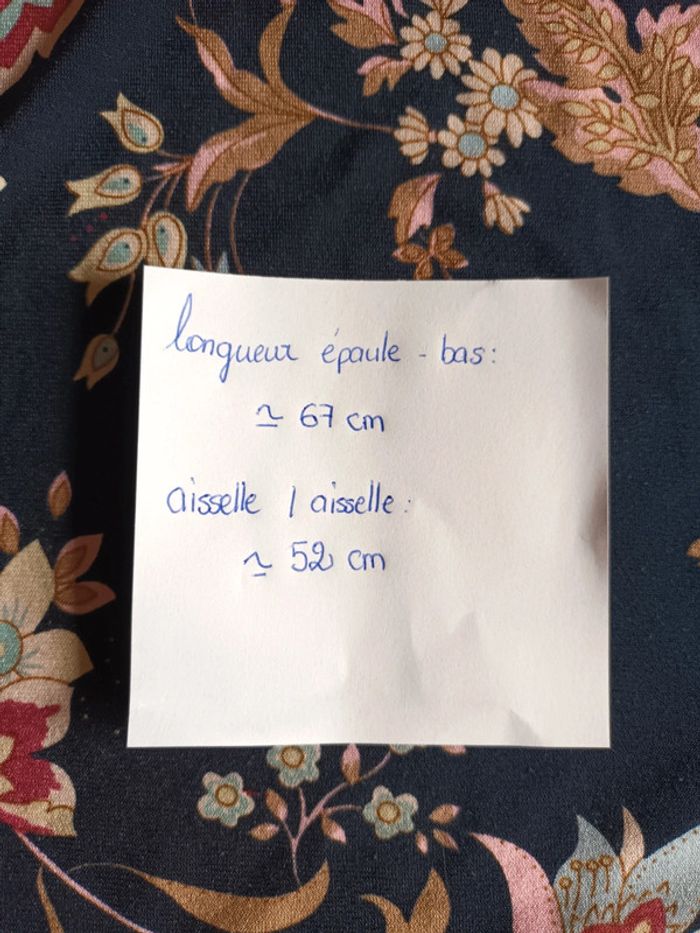 longueur épaule - bas:
≃ 67 cm
aisselle / aisselle:
≃ 52 cm